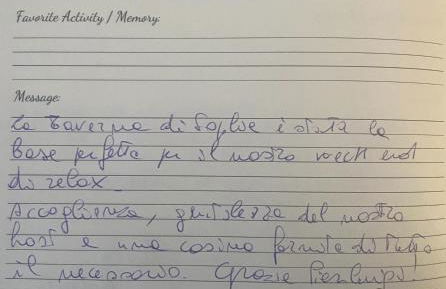 Favorite Activity / Memory:
Message:
La Taverna di Sophie è stata la
base perfetta per il nostro week end
di relax.
Accoglienza, gentilezza del nostro
host e una casina fornita di tutto
il necessario. Grazie Pierluigi!